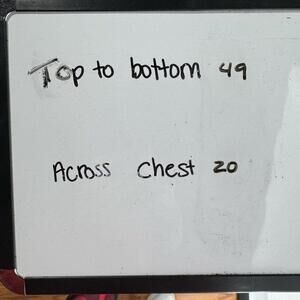 Top to bottom 49
Across Chest 20